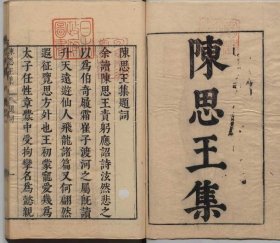 陳思王集
陳思王集題詞
余讀陳思王責躬應詔詩泫然悲之
以為伯奇履霜崔子渡河之屬既讀
升天遠遊仙人飛龍諸篇又何翩然
遐征覽思方外也王初蒙寵愛幾為
太子任性章醉中受拘攣名為懿親